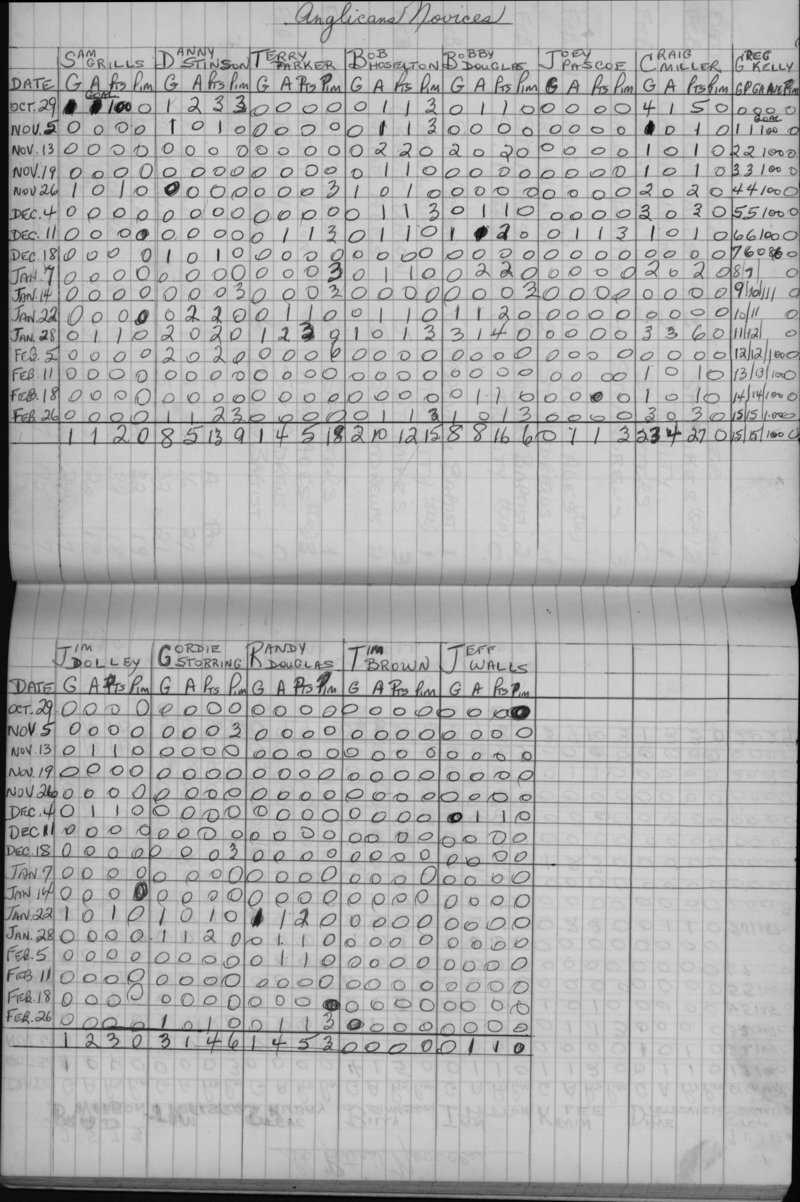 Anglicans Novices
SAM GRILLS DANNY STINSON TERRY PARKER BOB HOSELTON BOBBY DOUGLAS JOEY PASCOE CRAIG MILLER GREG KELLY
DATE G A Pts Pim G A Pts Pim G A Pts Pim G A Pts Pim G A Pts Pim G A Pts Pim G A Pts Pim GP GA AVE Pim
OCT. 29 1 0 0 0 1 2 3 3 0 0 0 0 0 1 1 3 0 1 1 0 0 0 0 0 4 1 5 0 0 0 0 0
NOV. 5 0 0 0 0 1 0 1 0 0 0 0 0 0 1 1 3 0 0 0 0 0 0 0 0 1 0 1 0 1 1 100 0
NOV. 13 0 0 0 0 0 0 0 0 0 0 0 0 0 2 2 0 2 0 2 0 0 0 0 0 1 0 1 0 2 2 100 0
NOV. 19 0 0 0 0 0 0 0 0 0 0 0 0 0 1 1 0 0 0 0 0 0 0 0 0 1 0 1 0 3 3 100 0
NOV 26 1 0 1 0 0 0 0 0 0 0 0 3 1 0 1 0 0 0 0 0 0 0 0 0 2 0 2 0 4 4 100 0
DEC. 4 0 0 0 0 0 0 0 0 0 0 0 0 0 1 1 3 0 1 1 0 0 0 0 0 3 0 3 0 5 5 100 0
DEC. 11 0 0 0 0 0 0 0 0 0 1 1 3 0 1 1 0 1 1 2 0 0 1 1 3 1 0 1 0 6 6 100 0
DEC. 18 0 0 0 0 1 0 1 0 0 0 0 0 0 0 0 0 0 0 0 0 0 0 0 0 0 0 0 0 7 6 086 0
JAN. 7 0 0 0 0 0 0 0 0 0 0 0 3 0 1 1 0 0 2 2 0 0 0 0 0 2 0 2 0 8 9/ 0
JAN. 14 0 0 0 0 0 0 0 3 0 0 0 3 0 0 0 0 0 0 0 3 0 0 0 0 0 0 0 0 9/10/111 0
JAN. 22 0 0 0 0 0 2 2 0 0 1 1 0 0 1 1 0 1 1 2 0 0 0 0 0 0 0 0 0 10/11 0
JAN. 28 0 1 1 0 2 0 2 0 1 2 3 9 1 0 1 3 3 1 4 0 0 0 0 0 3 3 6 0 11/12/ 0
FEB. 5 0 0 0 0 2 0 2 0 0 0 0 6 0 0 0 0 0 0 0 0 0 0 0 0 0 0 0 0 12/12/100 0
FEB. 11 0 0 0 0 0 0 0 0 0 0 0 0 0 0 0 0 0 0 0 0 0 0 0 0 1 0 1 0 13/13/100 0
FEB. 18 0 0 0 0 0 0 0 0 0 0 0 0 0 0 0 0 0 1 1 0 0 0 0 0 1 0 1 0 14/14/100 0
FEB 26 0 0 0 0 0 1 1 2 3 0 0 0 0 0 1 1 3 1 0 1 3 0 0 0 0 3 0 3 0 15/15/100 0
1 1 2 0 8 5 13 9 1 4 5 18 2 10 12 15 8 8 16 6 0 1 1 3 23 4 27 0 15/15/100 0
JIM DOLLEY GORDIE STORRING RANDY DOUGLAS TIM BROWN JEFF WALLS
DATE G A Pts Pim G A Pts Pim G A Pts Pim G A Pts Pim G A Pts Pim
OCT. 29 0 0 0 0 0 0 0 0 0 0 0 0 0 0 0 0 0 0 0 0
NOV. 5 0 0 0 0 0 0 0 3 0 0 0 0 0 0 0 0 0 0 0 0
NOV. 13 0 1 1 0 0 0 0 0 0 0 0 0 0 0 0 0 0 0 0 0
NOV. 19 0 0 0 0 0 0 0 0 0 0 0 0 0 0 0 0 0 0 0 0
NOV 26 0 0 0 0 0 0 0 0 0 0 0 0 0 0 0 0 0 0 0 0
DEC. 4 0 1 1 0 0 0 0 0 0 0 0 0 0 0 0 0 0 1 1 0
DEC 11 0 0 0 0 0 0 0 0 0 0 0 0 0 0 0 0 0 0 0 0
DEC. 18 0 0 0 0 0 0 0 3 0 0 0 0 0 0 0 0 0 0 0 0
JAN. 7 0 0 0 0 0 0 0 0 0 0 0 0 0 0 0 0 0 0 0 0
JAN. 14 0 0 0 0 0 0 0 0 0 0 0 0 0 0 0 0 0 0 0 0
JAN 22 1 0 1 0 1 0 1 0 1 1 2 0 0 0 0 0 0 0 0 0
JAN. 28 0 0 0 0 1 1 2 0 0 1 1 0 0 0 0 0 0 0 0 0
FEB. 5 0 0 0 0 0 0 0 0 0 1 1 0 0 0 0 0 0 0 0 0
FEB 11 0 0 0 0 0 0 0 0 0 0 0 0 0 0 0 0 0 0 0 0
FEB. 18 0 0 0 0 0 0 0 0 0 0 0 0 0 0 0 0 0 0 0 0
FEB. 26 0 0 0 0 1 0 1 0 0 1 1 3 0 0 0 0 0 0 0 0
1 2 3 0 3 1 4 6 1 4 5 3 0 0 0 0 0 1 1 0